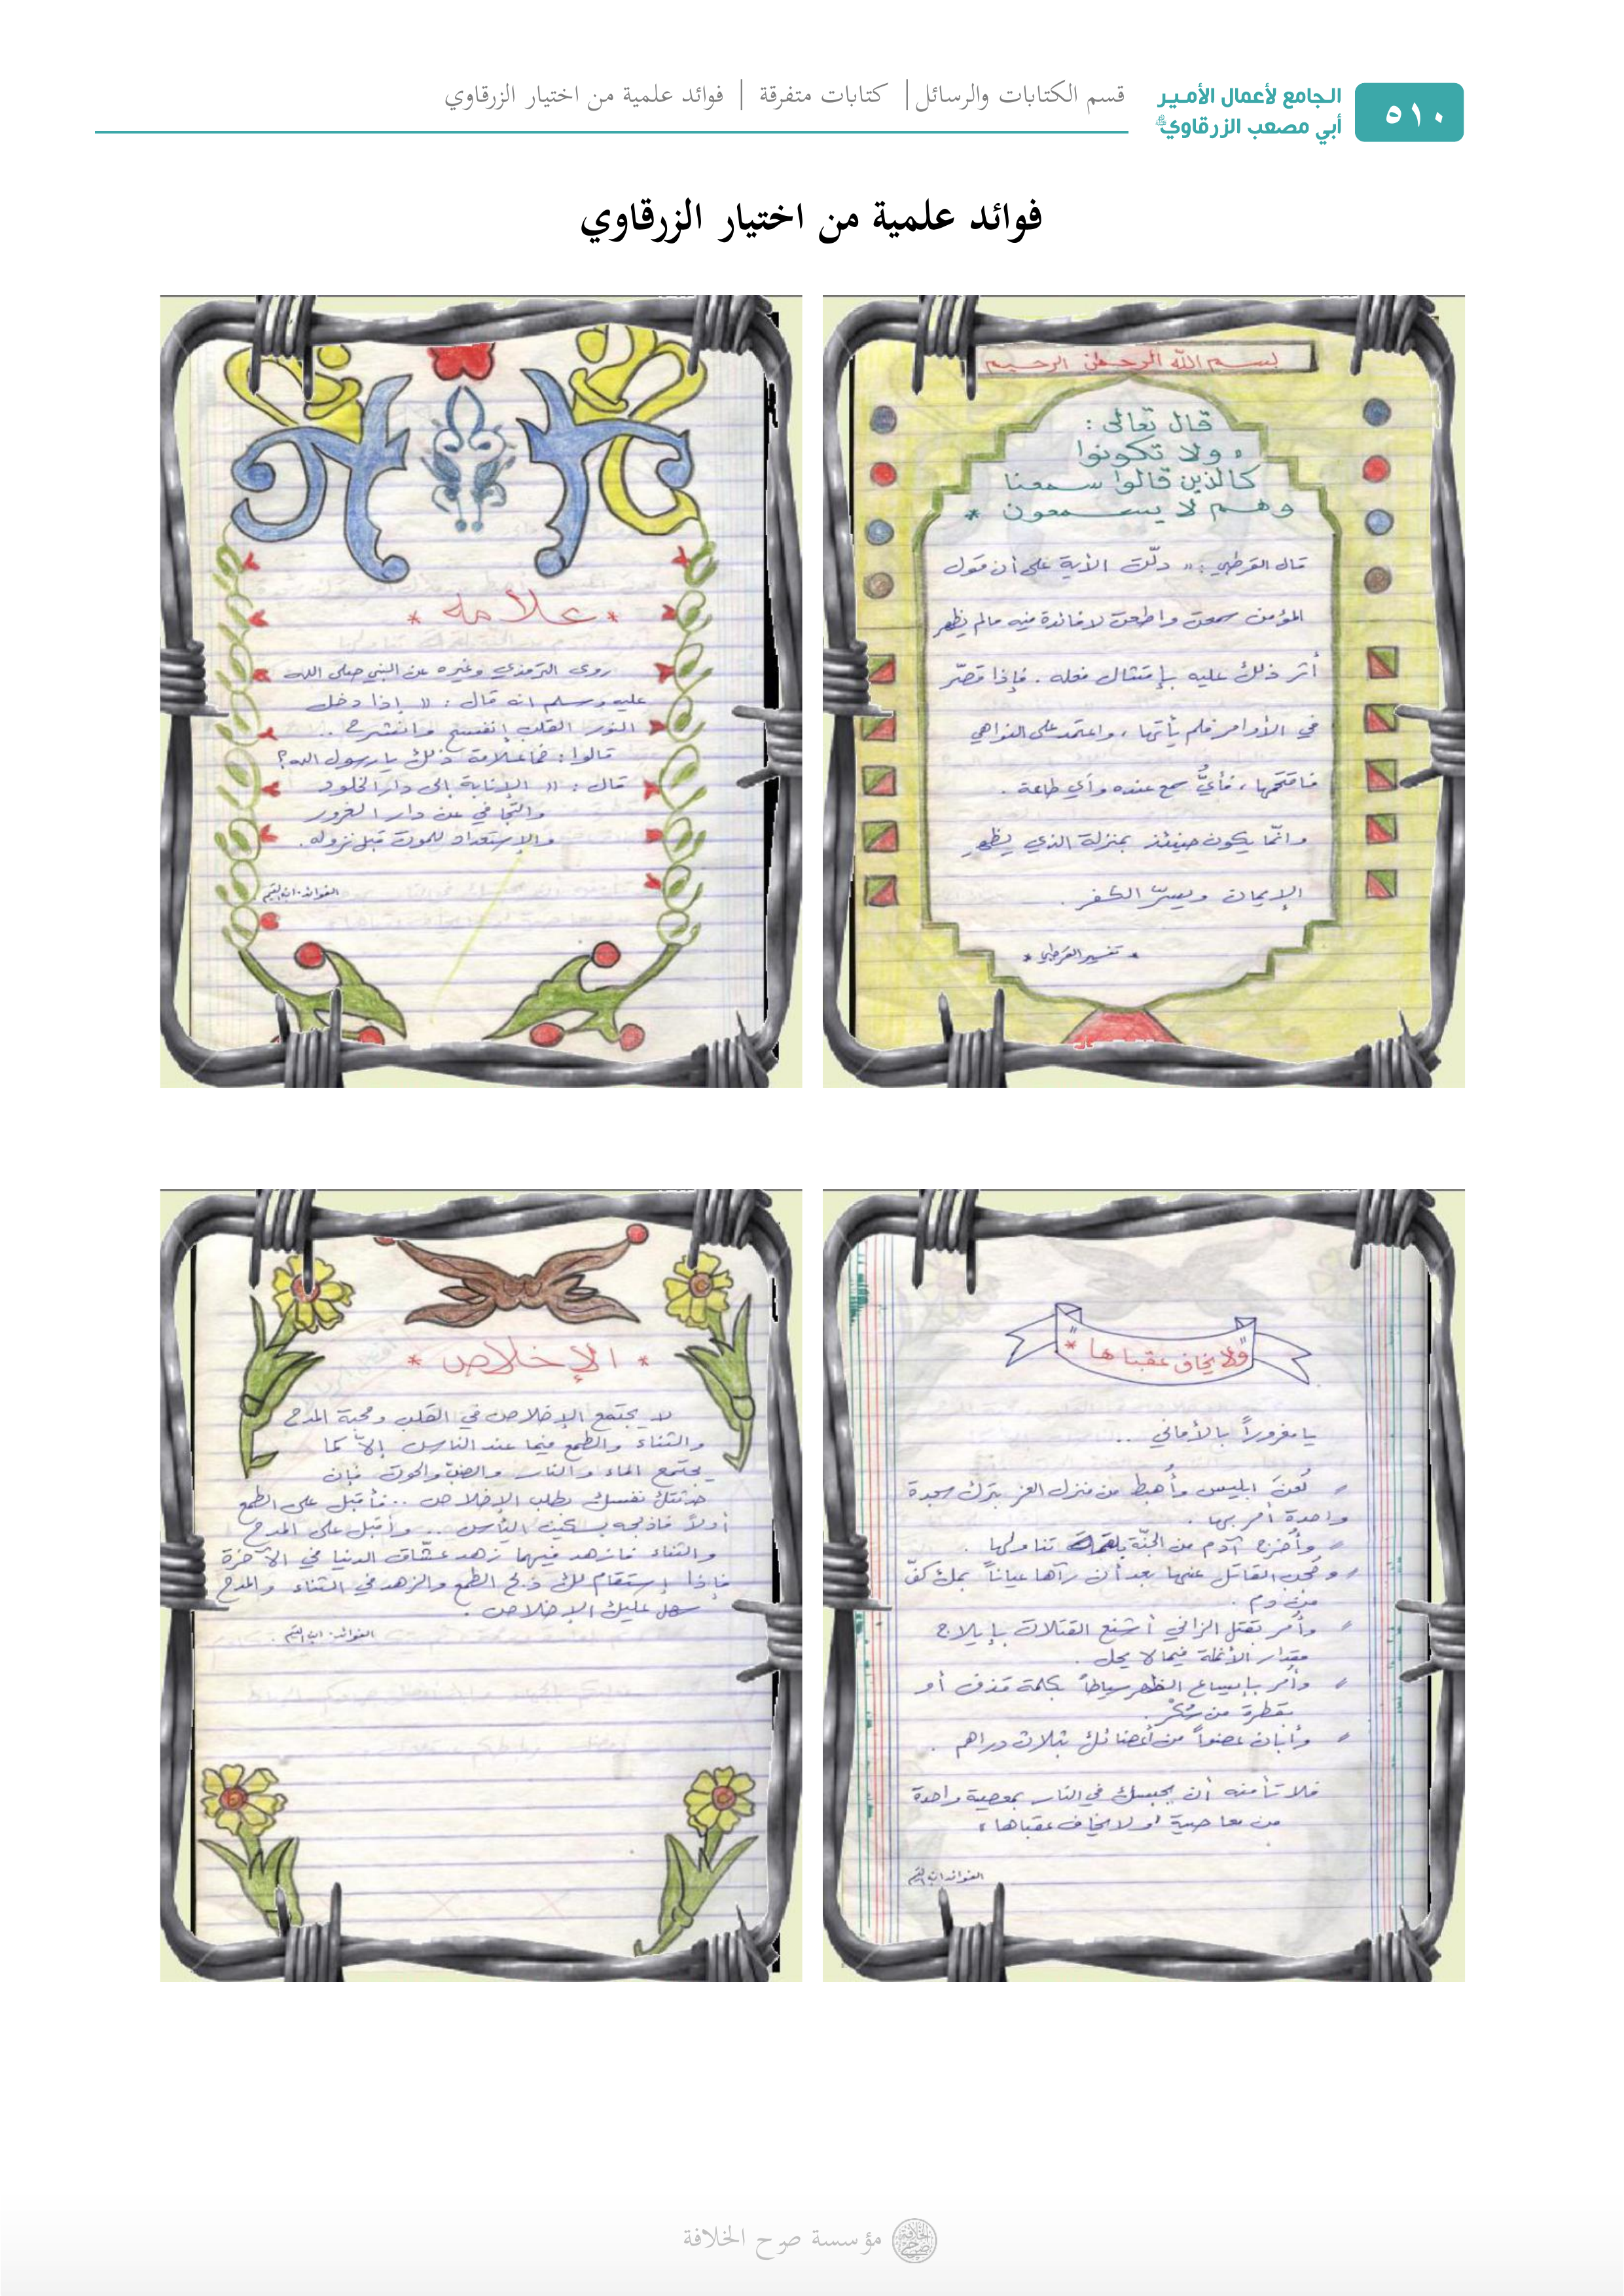 ٥١٠
الجامع لأعمال الأمير
أبي مصعب الزرقاوي
قسم الكتابات والرسائل | كتابات متفرقة | فوائد علمية من اختيار الزرقاوي
فوائد علمية من اختيار الزرقاوي
بسم الله الرحمن الرحيم
قال تعالى :
ولا تكونوا
كالذين قالوا سمعنا
وهم لا يسمعون *
قال القرطبي : " دلّت الأية على أن قول
المؤمن سمعت واطعت لا فائدة فيه مالم يظهر
أثر ذلك عليه بإمتثال فعله . فإذا قصّر
في الأوامر فلم يأتها ، واعتمد على النواهي
فاقتحمها ، فأيُّ سمع عنده وأي طاعة .
وانّما يكون حينئذ بمنزلة الذي يظهر
الإيمان ويسرّ الكفر .
* تفسير القرطبي *
* علامه *
روى الترمذي وغيره عن النبي صلى الله
عليه وسلم انه قال : " إذا دخل
النور القلب إنفسح وانشرح ..
قالوا : فما علامة ذلك يا رسول الله ؟
قال : " الإنابة إلى دار الخلود
والتجافي عن دار الغرور
والإستعداد للموت قبل نزوله .
الفوائد . ابن القيم
" ولا يخاف عقباها " *
يا مغروراً بالأماني ..
لُعنَ ابليس وأُهبط من منزل العز بترك سجدة
واحدة أُمر بها .
وأُخرج آدم من الجنّة بلقمة تناولها .
وحُجب القاتل عنها بعد أن رآها عياناً بملء كفّ
من دم .
وأُمر بقتل الزاني أشنع القتلات بإيلاج
مقدار الأنملة فيما لا يحل .
وأُمر بإيساع الظهر سياطاً بكلمة قذف أو
بقطرة من مُسْكر .
وأبان عضواً من أعضائك بثلاث دراهم .
فلا تأمنه أن يحبسك في النار بمعصية واحدة
من معاصية " ولا يخاف عقباها "
الفوائد ابن القيم
* الإخلاص *
لا يجتمع الإخلاص في القلب ومحبة المدح
والثناء والطمع فيما عند الناس إلاّ كما
يجتمع الماء والنار والضبّ والحوت فإن
حدثتك نفسك بطلب الإخلاص .. فأقبل على الطمع
أولاً فاذبحه بسكين اليأس .. وأقبل على المدح
والثناء فازهد فيهما زهد عشّاق الدنيا في الآخرة
فإذا إستقام لك ذبح الطمع والزهد في الثناء والمدح
سهل عليك الإخلاص .
الفوائد . ابن القيم .
مؤسسة صرح الخلافة